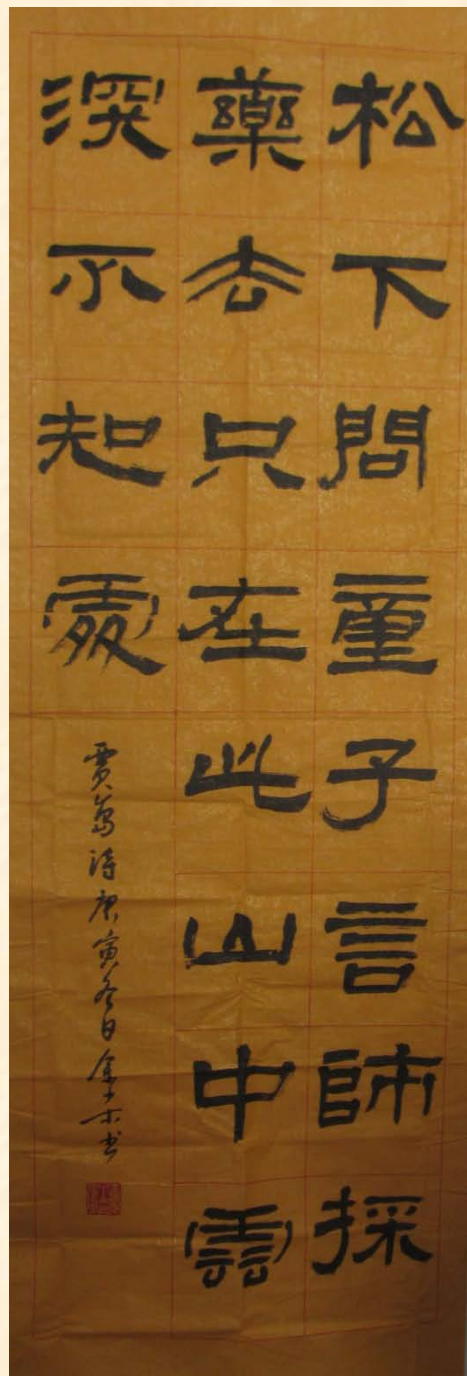 松下問童子言師採
藥去只在此山中雲
深不知處
賈島詩庚寅冬日金木书